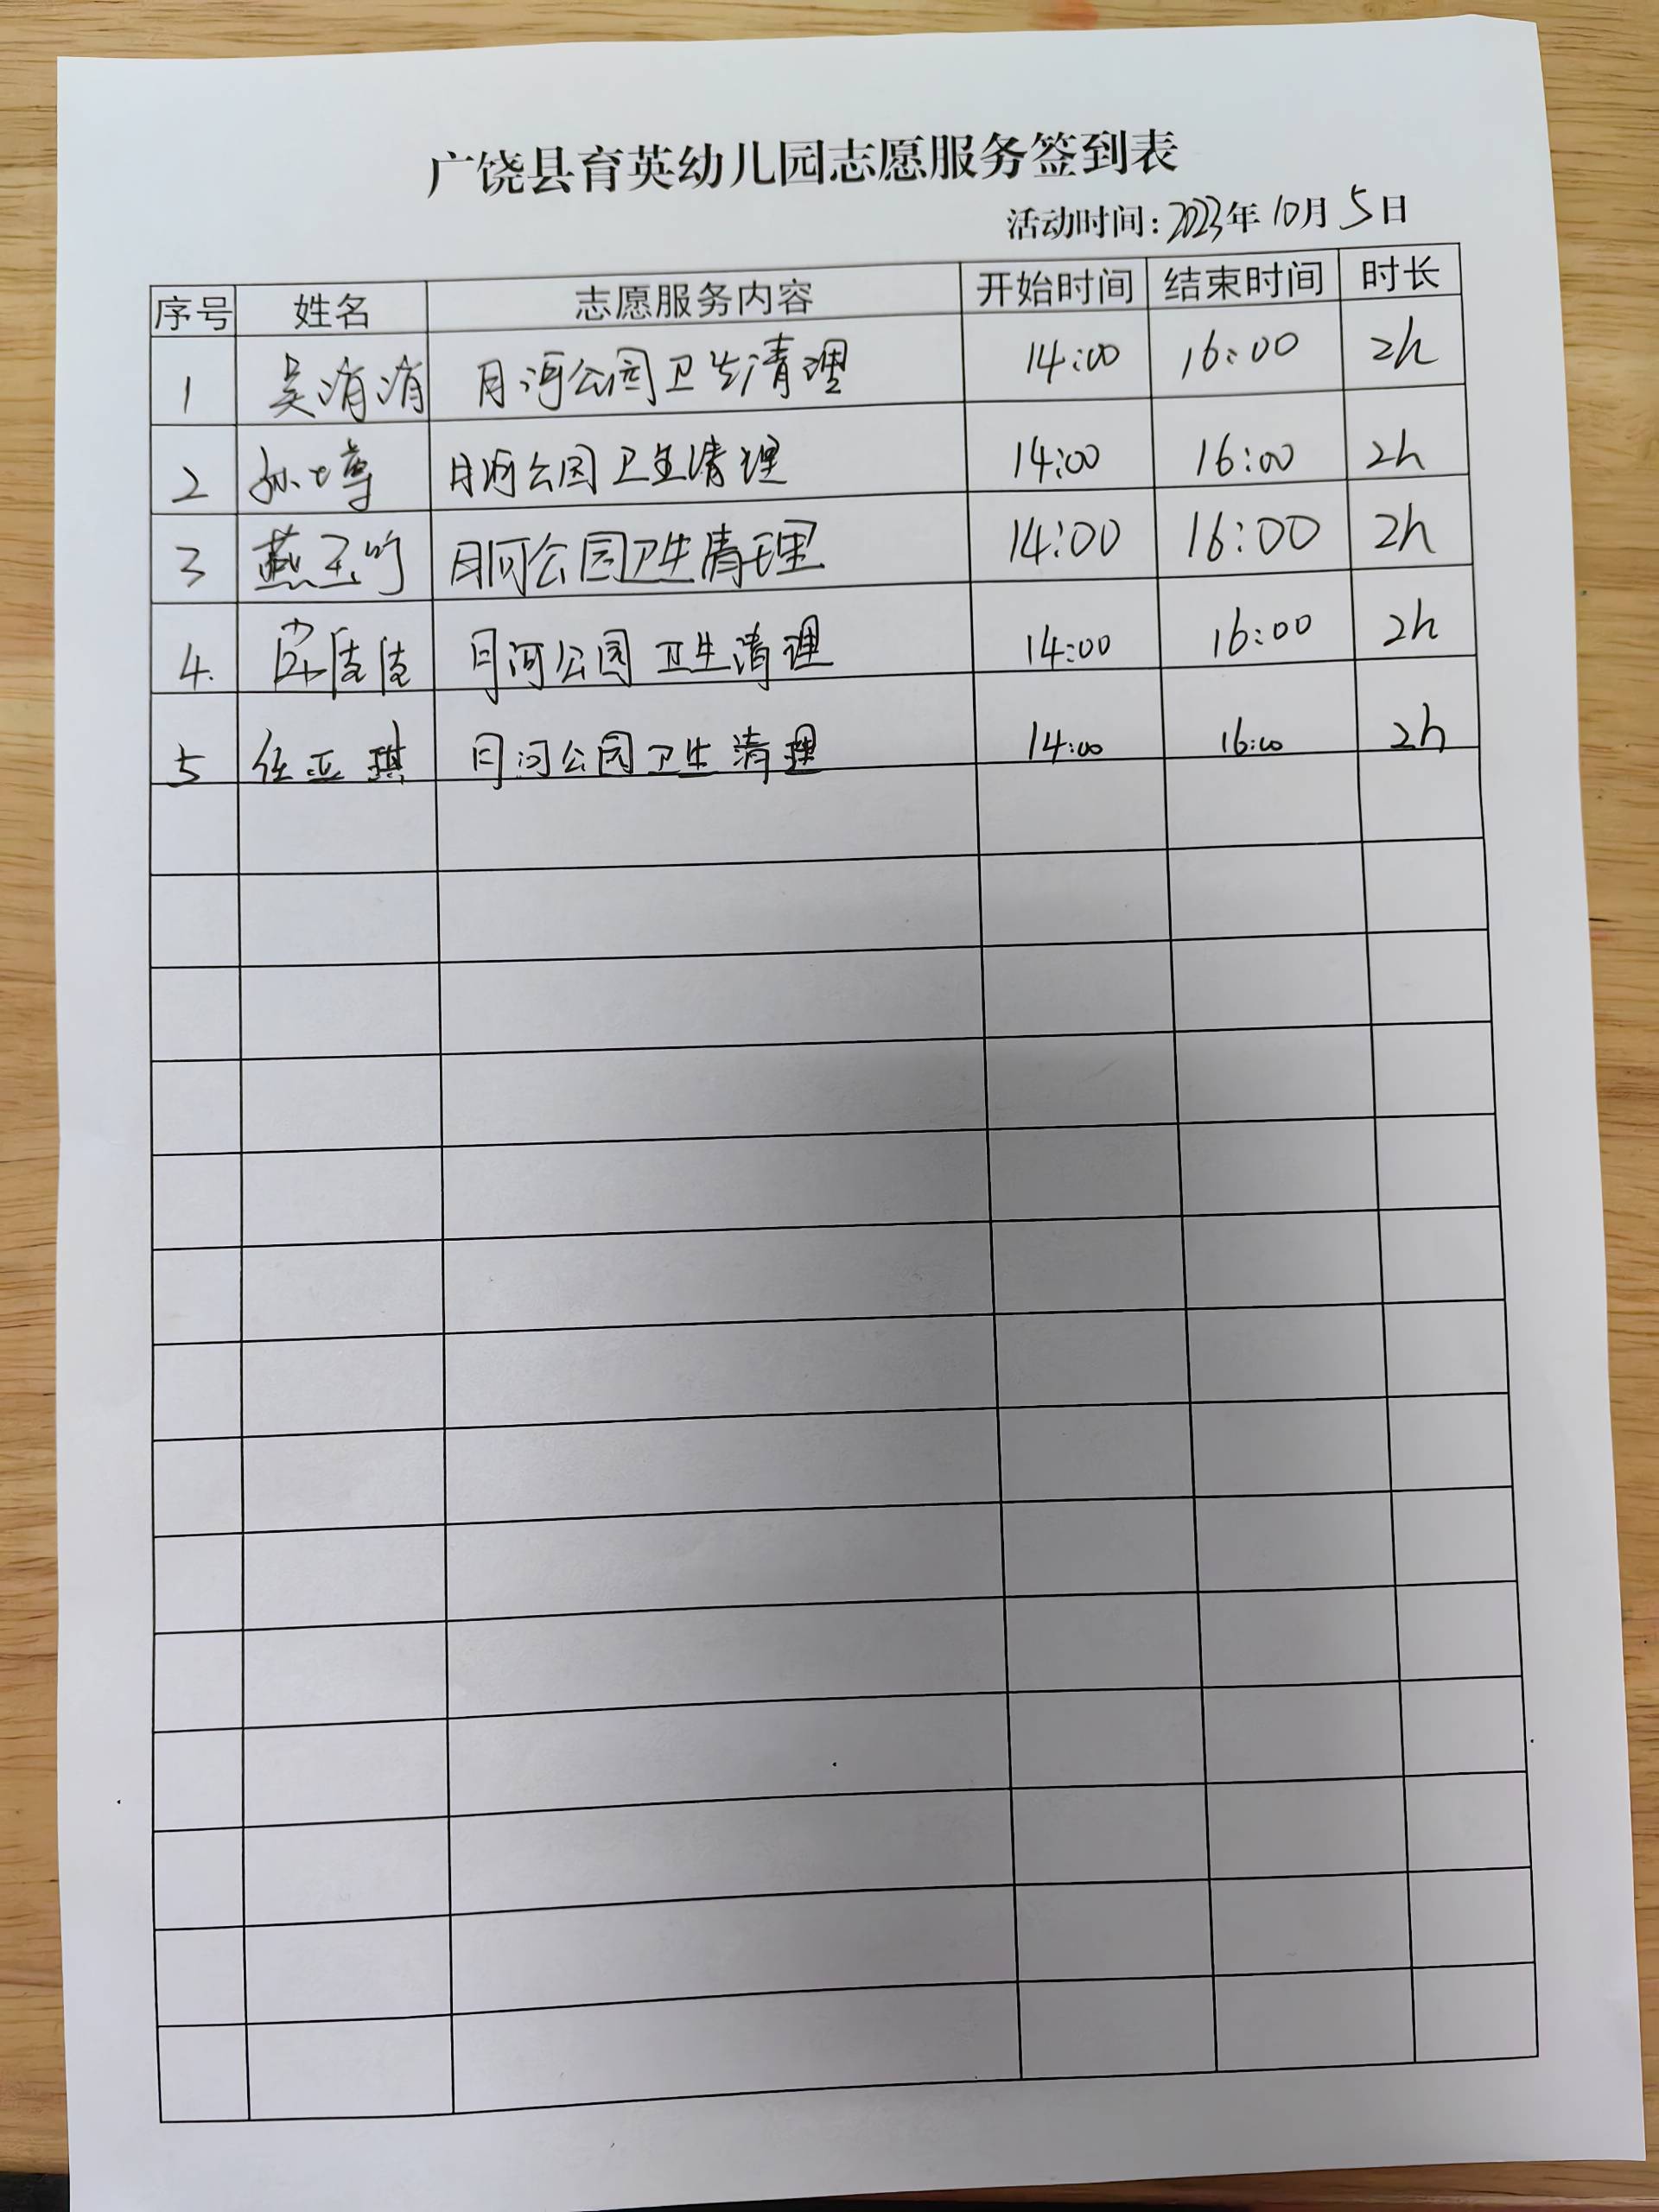 广饶县育英幼儿园志愿服务签到表
活动时间：2023年10月5日
序号 姓名 志愿服务内容 开始时间 结束时间 时长
1 吴消消 月河公园卫生清理 14:00 16:00 2h
2 孙 月河公园卫生清理 14:00 16:00 2h
3 燕玉 月河公园卫生清理 14:00 16:00 2h
4. 月河公园卫生清理 14:00 16:00 2h
5 任亚琪 月河公园卫生清理 14:00 16:00 2h